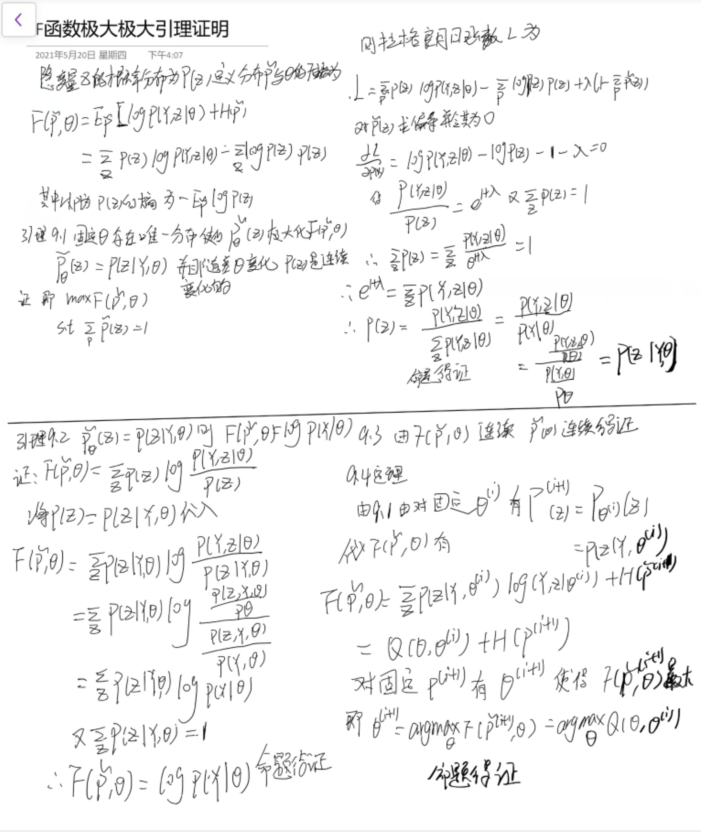 F函数极大极大引理证明
2021年5月20日 星期四 下午4:07
隐变量Z的概率分布为P̃(z) 定义分布P̃与θ的函数为
F(P̃,θ) = Ep̃[logP(Y,Z|θ)] + H(P̃)
= Σ_z P(z) logP(Y,z|θ) - Σ_z logP(z) P(z)
其中H(P̃)为P(z)的熵 为 -Ep̃ logP(z)
引理9.1 固定θ存在唯一分布使 P̃θ(z) 极大化F(P̃,θ)
P̃θ(z) = P(z|Y,θ) 并且P̃随θ变化 P(z)是连续变化的
证 即 max F(P̃,θ)
s.t Σ_p P̃(z) = 1
则拉格朗日函数L为
L = Σ_p P(z) logP(Y,z|θ) - Σ_p logP(z) P(z) + λ(1-Σ_p P̃(z))
对P̃(z)求偏导 并令其为0
∂L/∂P(z) = logP(Y,z|θ) - logP(z) - 1 - λ = 0
则 P(Y,z|θ)/P(z) = e^{1+λ} 又 Σ_z P(z) = 1
∴ Σ_z P(z) = Σ_z P(Y,z|θ)/e^{1+λ} = 1
∴ e^{1+λ} = Σ_z P(Y,z|θ)
∴ P(z) = P(Y,z|θ)/Σ_z P(Y,z|θ) = P(Y,z|θ)/P(Y|θ)
= (P(Y,z,θ)/P(θ))/(P(Y,θ)/Pθ) = P(z|Y,θ)
命题得证
引理9.2 P̃θ(z) = P(z|Y,θ) 则 F(P̃,θ) = logP(Y|θ)
证: F(P̃,θ) = Σ_z P(z) log P(Y,z|θ)/P(z)
将P(z) = P(z|Y,θ)代入
F(P̃,θ) = Σ_z P(z|Y,θ) log P(Y,z|θ)/P(z|Y,θ)
= Σ_z P(z|Y,θ) log (P(z,Y,θ)/Pθ)/(P(z,Y,θ)/P(Y,θ))
= Σ_z P(z|Y,θ) log P(Y|θ)
又 Σ_z P(z|Y,θ) = 1
∴ F(P̃,θ) = logP(Y|θ) 命题得证
9.3 由F(P̃,θ) 连续 P̃(θ)连续得证
9.4定理
由9.1 由对固定θ^(i) 有 P̃^(i+1)(z) = Pθ^(i)(z)
= P(z|Y,θ^(i))
代入F(P̃,θ)有
F(P̃,θ) = Σ_z P(z|Y,θ^(i)) log(Y,z|θ^(i)) + H(P̃^(i+1))
= Q(θ,θ^(i)) + H(P^(i+1))
对固定P^(i+1) 有 θ^(i+1) 使得 F(P̃^(i+1),θ)最大
即 θ^(i+1) = argmax_θ F(P̃^(i+1),θ) = argmax_θ Q(θ,θ^(i))
命题得证